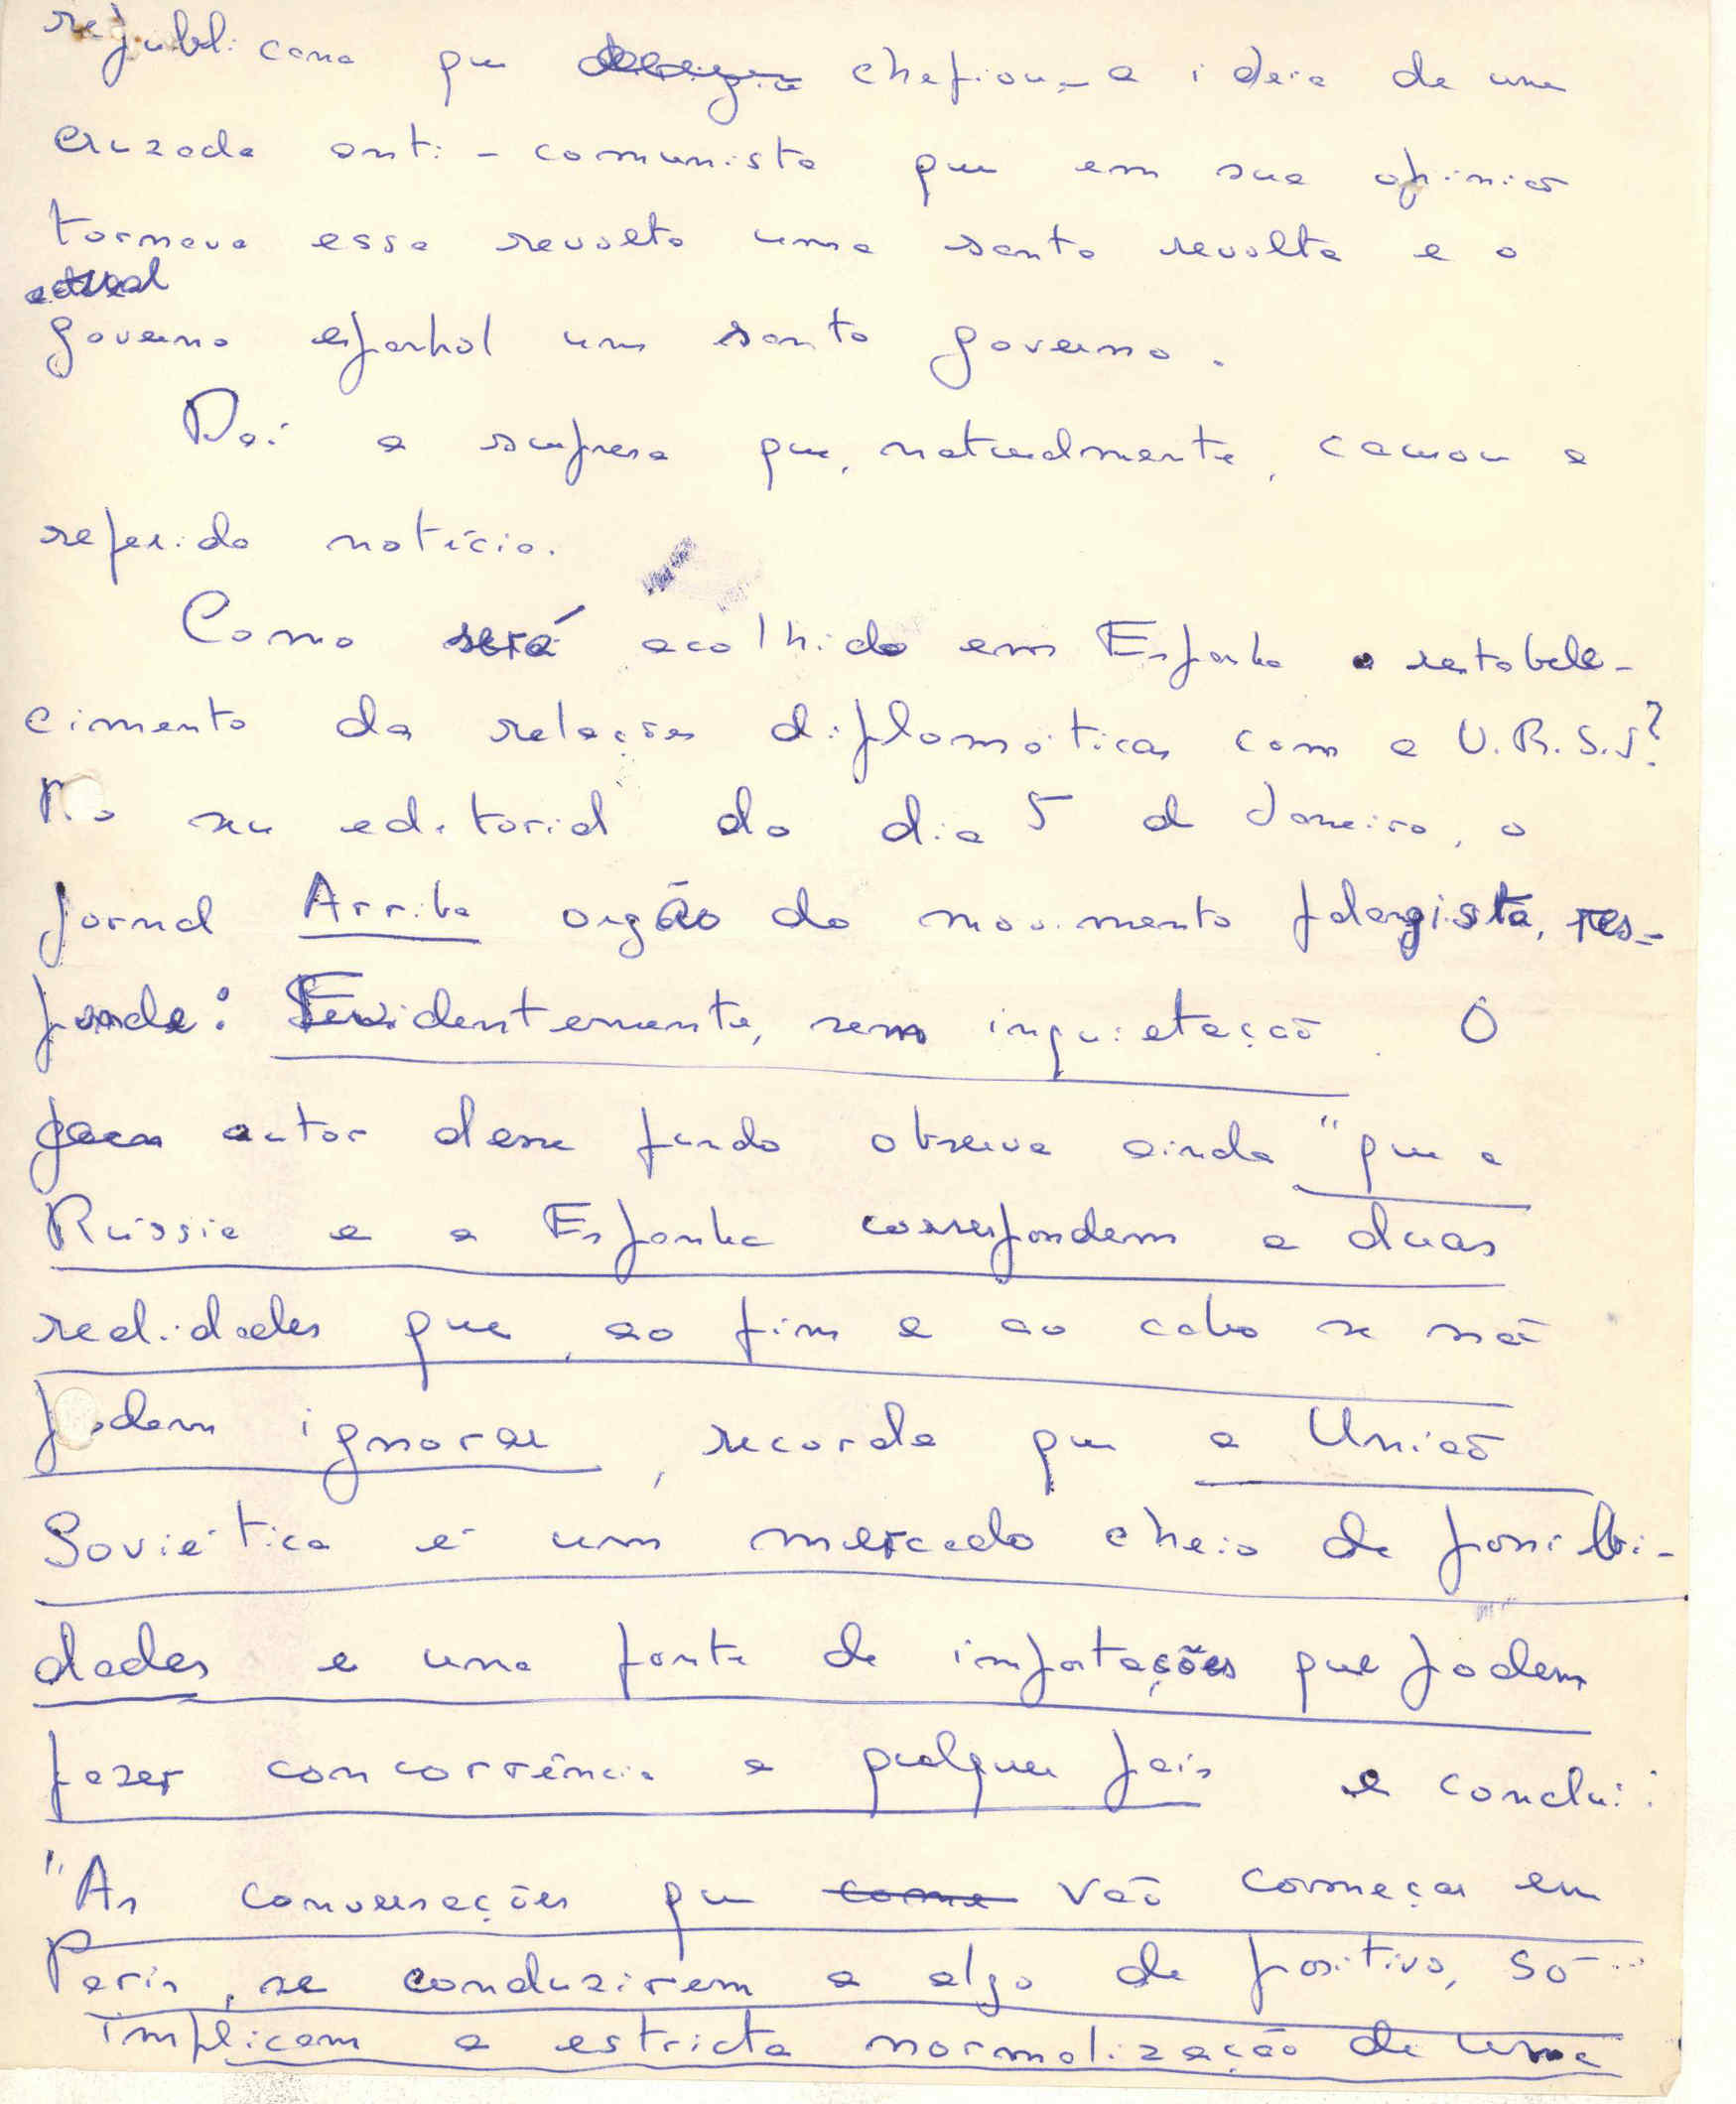 republicana que chefiou, a ideia de uma
cruzada anti-comunista que em sua opinião
tornava essa revolta uma santa revolta e o
actual
governo espanhol um santo governo.
Daí a surpresa que, naturalmente, causou a
referida notícia.
Como será acolhido em Espanha o restabele-
cimento das relações diplomáticas com a U.R.S.S?
No seu editorial do dia 5 de Janeiro, o
jornal Arriba orgão do movimento falangista, res-
ponde: Evidentemente, sem inquietação. O
autor desse fundo observa ainda "que a
Rússia e a Espanha correspondem a duas
realidades que, ao fim e ao cabo se não
podem ignorar, recorda que a União
Soviética é um mercado cheio de possibi-
dades e uma fonte de importações que podem
fazer concorrência a qualquer país e conclui:
"As conversações que come vão começar em
Paris, se conduzirem a algo de positivo, só
implicam a estricta normalização de uma